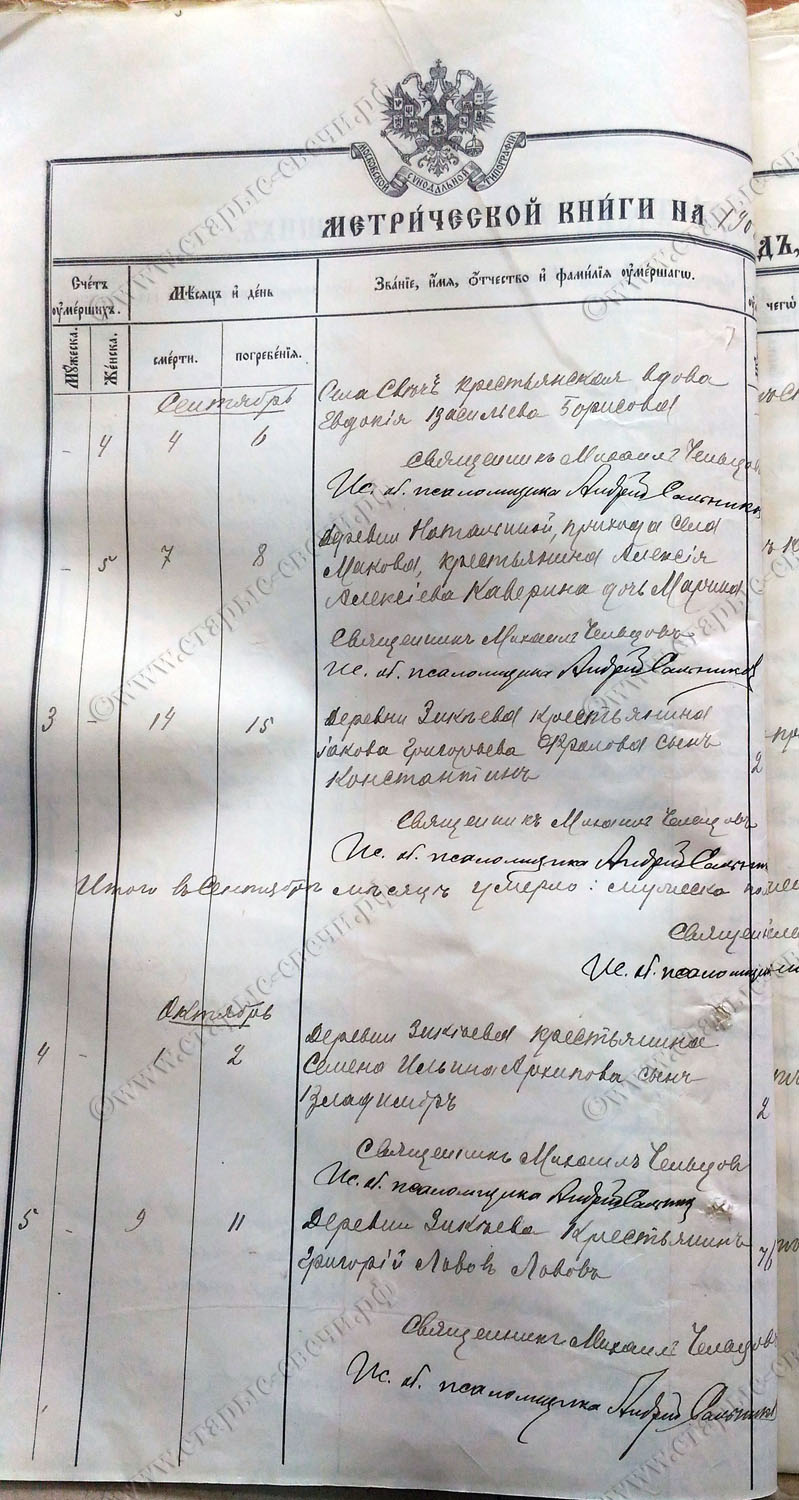 МОСКОВСКОЙ СѴНОДАЛЬНОЙ ТИПОГРАФІИ
МЕТРИ́ЧЕСКОЙ КНИ́ГИ НА 190
ДЪ,
Сче́тъ оумершихъ.
Мѣсяцъ и день
Зва́ніе, и́мя, о́тчество и фами́лія оуме́ршагѡ.
чегѡ̀
Мужеска.
Же́нска.
сме́рти.
погребе́нія.
Сентябрь
Села крестьянская вдова
Евдокія Васильева Борисова
- 4 4 6
Священникъ Михаилъ Чельцовъ
Ис. об. псаломщика Андрей Сальников
деревни Натальиной, прихода села
- 5 7 8
Макова, крестьянина Алексія
Алексіева Каверина дочь Марина
Священникъ Михаилъ Чельцовъ
Ис. об. псаломщика Андрей Сальников
3 - 14 15
Деревни Зикѣева крестьянина
Іакова Григорьева Фролова сынъ
2
Константинъ
Священникъ Михаилъ Чельцовъ
Ис. об. псаломщика Андрей Сальник
Итого въ Сентябрѣ мѣсяцѣ умерло: мужеска
Священ
Ис. об. псаломщи
Октябрь
Деревни Зикѣева крестьянина
4 - 1 2
Семена Ильина Архипова сынъ
Владиміръ
2
Священникъ Михаилъ Чельцовъ
Ис. об. псаломщика Андрей Сальник
5 - 9 11
Деревни Зикѣева крестьянинъ
Григорій Львовъ Львовъ
76
Священникъ Михаилъ Чельцовъ
Ис. об. псаломщика Андрей Сальников
©www.старые-свечи.рф